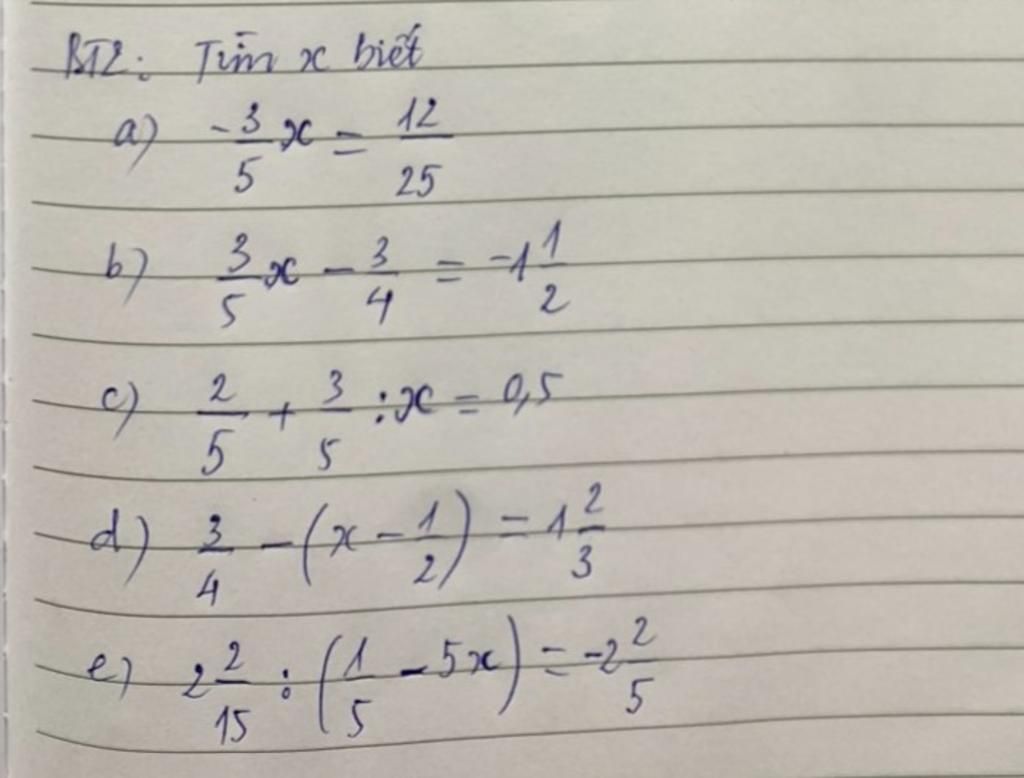 BT2: Tìm x biết
a) -3/5 x = 12/25
b) 3/5 x - 3/4 = -1 1/2
c) 2/5 + 3/5 : x = 0,5
d) 3/4 - (x - 1/2) = 1 2/3
e) 2 2/15 : (1/5 - 5x) = -2 2/5